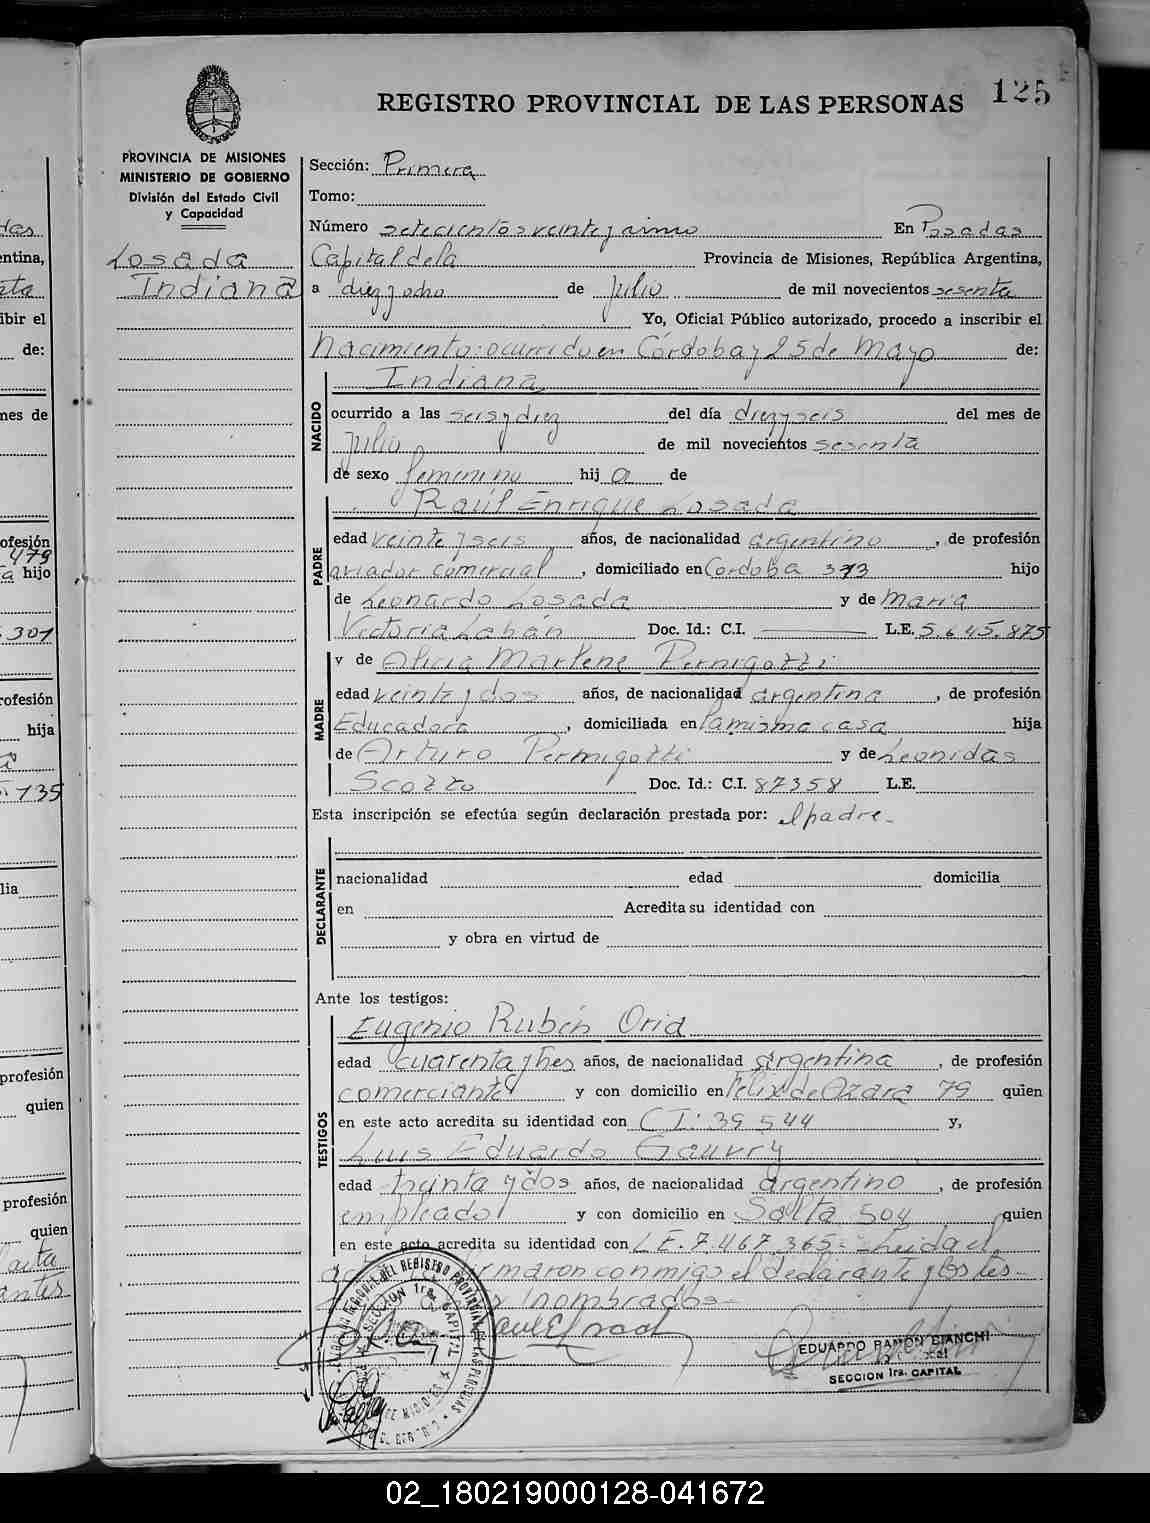 125
REGISTRO PROVINCIAL DE LAS PERSONAS
PROVINCIA DE MISIONES
MINISTERIO DE GOBIERNO
División del Estado Civil
y Capacidad
Losada
Indiana
Sección: Primera
Tomo:
Número setecientos veinte y En Posadas
Capital de la Provincia de Misiones, República Argentina,
a diez y ocho de Julio de mil novecientos sesenta
Yo, Oficial Público autorizado, procedo a inscribir el
Nacimiento: ocurrido en Córdoba y 25 de Mayo de:
NACIDO
Indiana
ocurrido a las seis y diez del día diez y seis del mes de
Julio de mil novecientos sesenta
de sexo femenino hij a de
PADRE
Raúl Enrique Losada
edad veinte y seis años, de nacionalidad argentino, de profesión
aviador comercial, domiciliado en Cordoba 373 hijo
de Leonardo Losada y de Maria
Victoria Labán Doc. Id.: C.I. L.E. 5.645.875
MADRE
y de Alicia Marlene Pernigotti
edad veinte y dos años, de nacionalidad argentina, de profesión
Educadora, domiciliada en la misma casa hija
de Arturo Pernigotti y de Leonidas
Scozzo Doc. Id.: C.I. 87358 L.E.
Esta inscripción se efectúa según declaración prestada por: el padre-
DECLARANTE
nacionalidad edad domicilia
en Acredita su identidad con
y obra en virtud de
Ante los testigos:
TESTIGOS
Eugenio Rubén
edad cuarenta y tres años, de nacionalidad argentina, de profesión
comerciante y con domicilio en Felix de Azara 79 quien
en este acto acredita su identidad con C I: 39 544 y,
Luis Eduardo Gauvry
edad treinta y dos años, de nacionalidad argentino, de profesión
empleado y con domicilio en Salta 504 quien
en este acto acredita su identidad con L E. 7.467.365- Leida el
firmaron conmigo el declarante y los tes-
nombrados-
EDUARDO RAMON BIANCHI
SECCION 1ra. CAPITAL
02_180219000128-041672